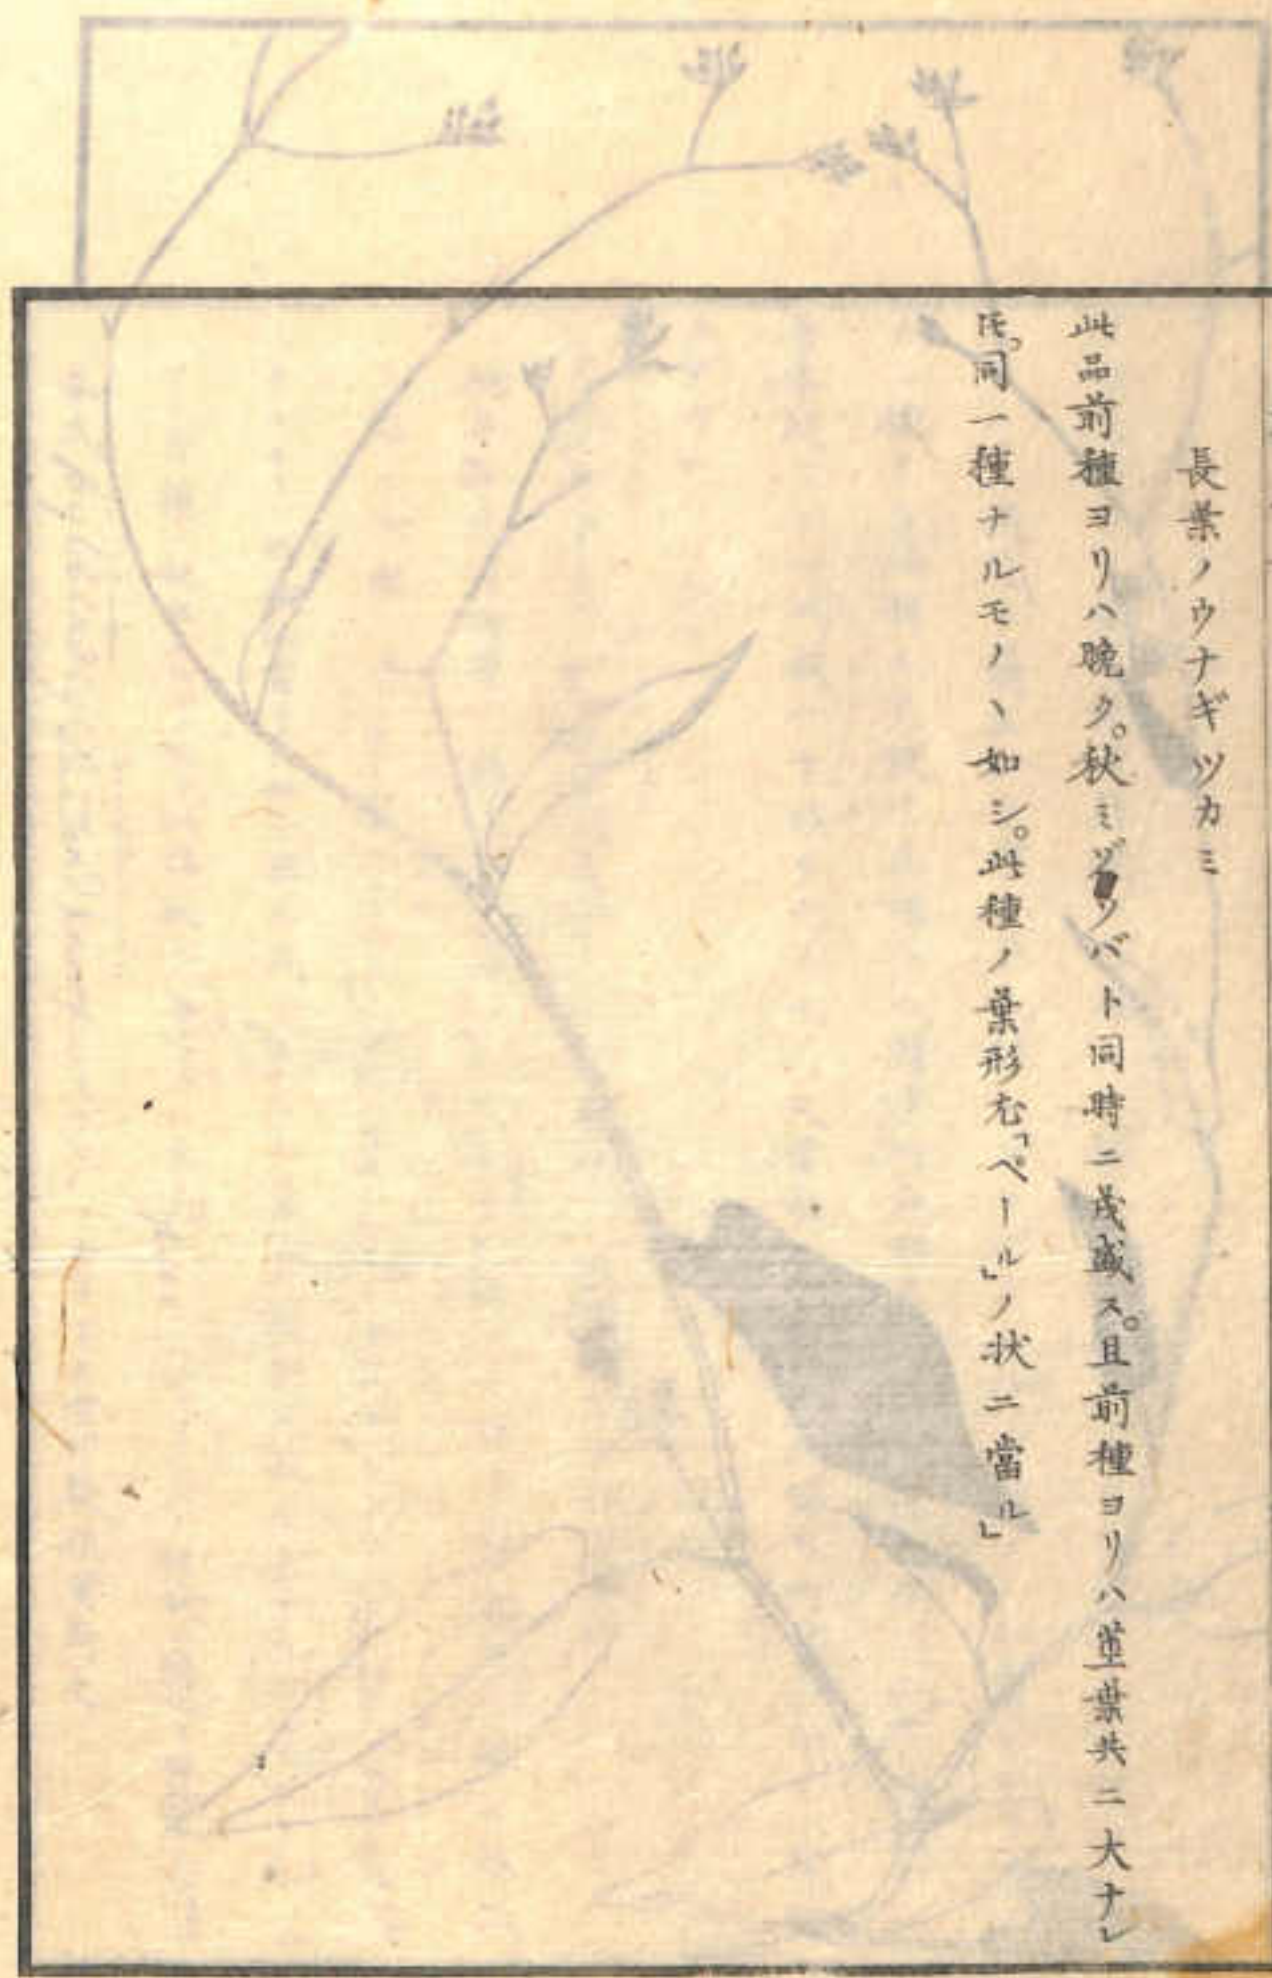 長葉ノウナギツカミ
此品前種ヨリハ晩ク。秋ミゾソバト同時ニ茂盛ス。且前種ヨリハ莖葉共ニ大ナレ
𪜈。同一種ナルモノヽ如シ。此種ノ葉形尤「ペール」ノ状ニ當ル」